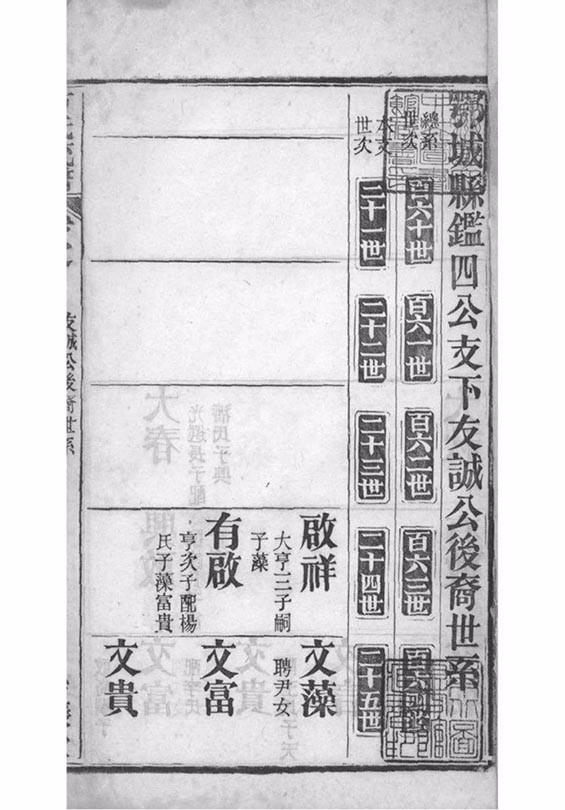 鄂城縣鑑四公支下友誠公後裔世系
總系世次
百六十世
百六一世
百六二世
百六三世
本支世次
二十一世
二十二世
二十三世
二十四世
二十五世
啟祥
大亨三子嗣
子藻
有啟
亨次子配楊
氏子藻富貴
文藻
聘尹女
文富
文貴
友誠公後裔世系